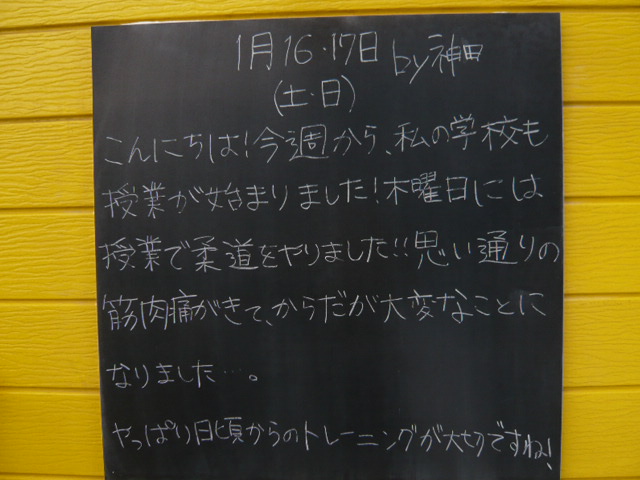 1月16・17日 by神田
(土・日)
こんにちは!今週から、私の学校も
授業が始まりました!木曜日には
授業で柔道をやりました!!思い通りの
筋肉痛がきて、からだが大変なことに
なりました…。
やっぱり日頃からのトレーニングが大切ですね!